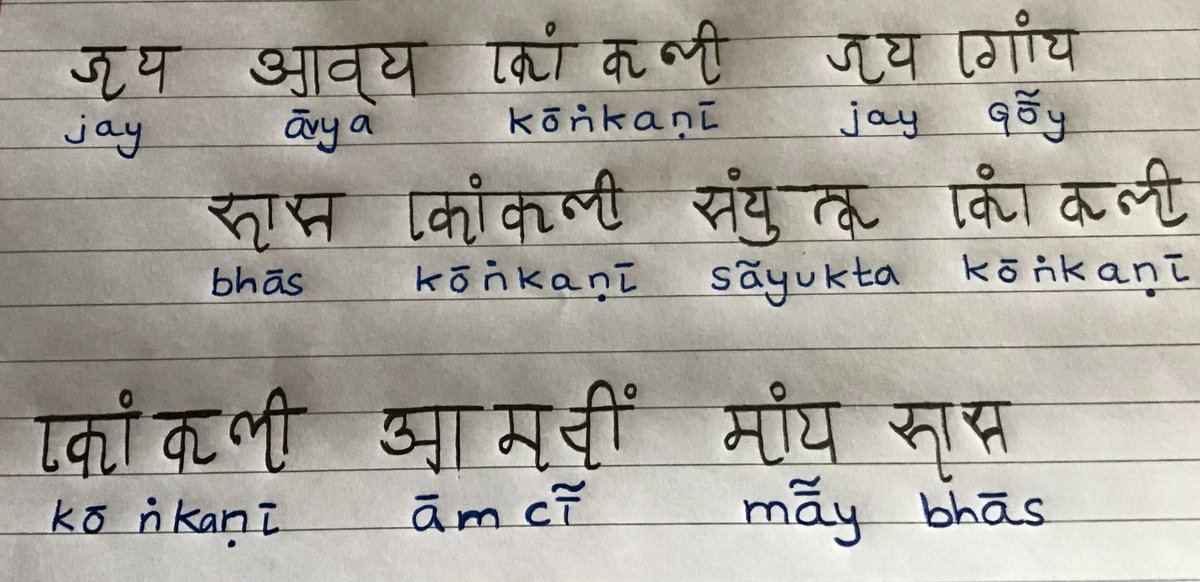 जय आव्य कोंकणी जय गोंय
jay āvya kōṅkaṇī jay gō̃y
भास कोंकणी संयुक्त कोंकणी
bhās kōṅkaṇī sãyukta kōṅkaṇī
कोंकणी आमचीं मांय भास
kōṅkaṇī āmcī̃ mā̃y bhās